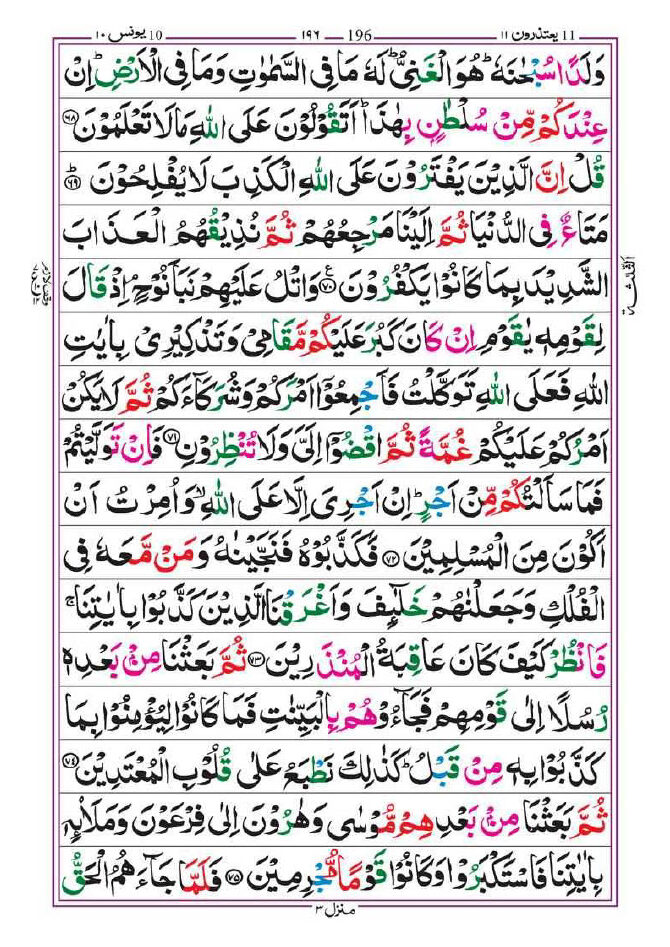 11 یعتذرون ۱۱
196 ۱۹۶
10 یونس ۱۰
وَلَدًا سُبْحٰنَهٗ ؕ هُوَ الْغَنِیُّ ؕ لَهٗ مَا فِی السَّمٰوٰتِ وَمَا فِی الْاَرْضِ ؕ اِنْ
عِنْدَكُمْ مِّنْ سُلْطٰنٍۭ بِهٰذَا ؕ اَتَقُوْلُوْنَ عَلَی اللّٰهِ مَا لَا تَعْلَمُوْنَ ﴿۶۸﴾
قُلْ اِنَّ الَّذِیْنَ یَفْتَرُوْنَ عَلَی اللّٰهِ الْكَذِبَ لَا یُفْلِحُوْنَ ﴿۶۹﴾ؕ
مَتَاعٌ فِی الدُّنْیَا ثُمَّ اِلَیْنَا مَرْجِعُهُمْ ثُمَّ نُذِیْقُهُمُ الْعَذَابَ
الشَّدِیْدَ بِمَا كَانُوْا یَكْفُرُوْنَ ﴿۷۰﴾ وَاتْلُ عَلَیْهِمْ نَبَاَ نُوْحٍ ۘ اِذْ قَالَ
الثلٰثة
لِقَوْمِهٖ یٰقَوْمِ اِنْ كَانَ كَبُرَ عَلَیْكُمْ مَّقَامِیْ وَتَذْكِیْرِیْ بِاٰیٰتِ
اللّٰهِ فَعَلَی اللّٰهِ تَوَكَّلْتُ فَاَجْمِعُوْۤا اَمْرَكُمْ وَشُرَكَآءَكُمْ ثُمَّ لَا یَكُنْ
اَمْرُكُمْ عَلَیْكُمْ غُمَّةً ثُمَّ اقْضُوْۤا اِلَیَّ وَلَا تُنْظِرُوْنِ ﴿۷۱﴾ فَاِنْ تَوَلَّیْتُمْ
فَمَا سَاَلْتُكُمْ مِّنْ اَجْرٍ ؕ اِنْ اَجْرِیَ اِلَّا عَلَی اللّٰهِ ۙ وَاُمِرْتُ اَنْ
اَكُوْنَ مِنَ الْمُسْلِمِیْنَ ﴿۷۲﴾ فَكَذَّبُوْهُ فَنَجَّیْنٰهُ وَمَنْ مَّعَهٗ فِی
الْفُلْكِ وَجَعَلْنٰهُمْ خَلٰٓئِفَ وَاَغْرَقْنَا الَّذِیْنَ كَذَّبُوْا بِاٰیٰتِنَا ۚ
فَانْظُرْ كَیْفَ كَانَ عَاقِبَةُ الْمُنْذَرِیْنَ ﴿۷۳﴾ ثُمَّ بَعَثْنَا مِنْۢ بَعْدِهٖ
رُسُلًا اِلٰی قَوْمِهِمْ فَجَآءُوْهُمْ بِالْبَیِّنٰتِ فَمَا كَانُوْا لِیُؤْمِنُوْا بِمَا
كَذَّبُوْا بِهٖ مِنْ قَبْلُ ؕ كَذٰلِكَ نَطْبَعُ عَلٰی قُلُوْبِ الْمُعْتَدِیْنَ ﴿۷۴﴾
ثُمَّ بَعَثْنَا مِنْۢ بَعْدِهِمْ مُّوْسٰی وَهٰرُوْنَ اِلٰی فِرْعَوْنَ وَمَلَا۟ئِهٖ
بِاٰیٰتِنَا فَاسْتَكْبَرُوْا وَكَانُوْا قَوْمًا مُّجْرِمِیْنَ ﴿۷۵﴾ فَلَمَّا جَآءَهُمُ الْحَقُّ
منزل ۳